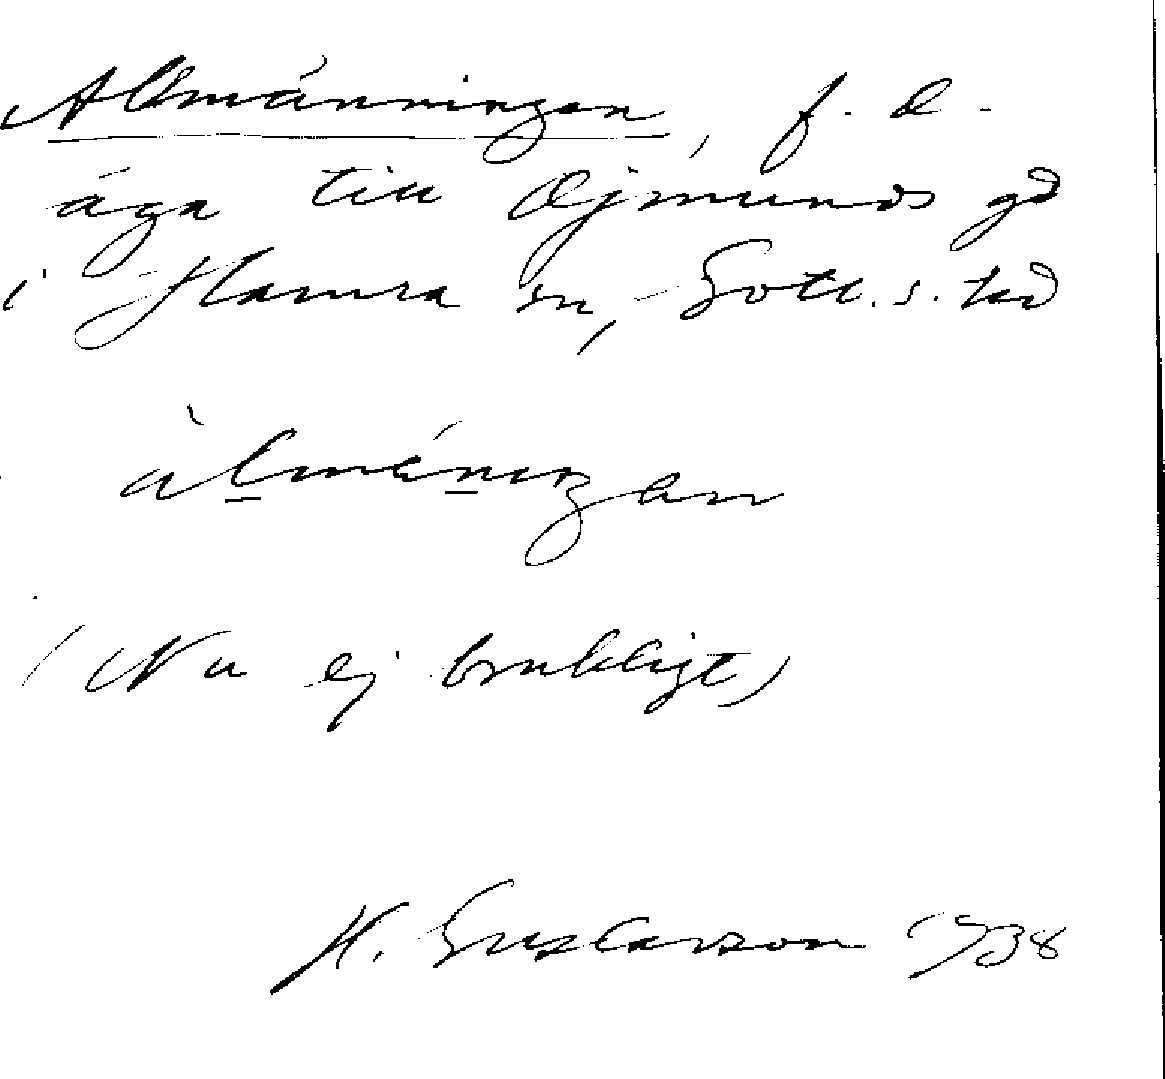 Allmänningen, f. d.
äga till Ejmunds gd
i Hamra sn, Gotl. s. hd
àlménıŋan
(Nu ej brukligt)
H. Gustavson 1938